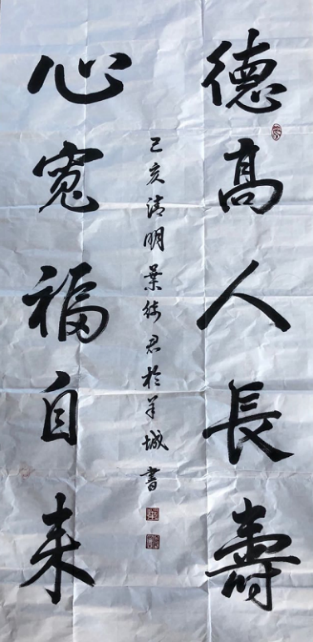 德高人長壽
心寬福自来
己亥清明葉绮君於羊城書